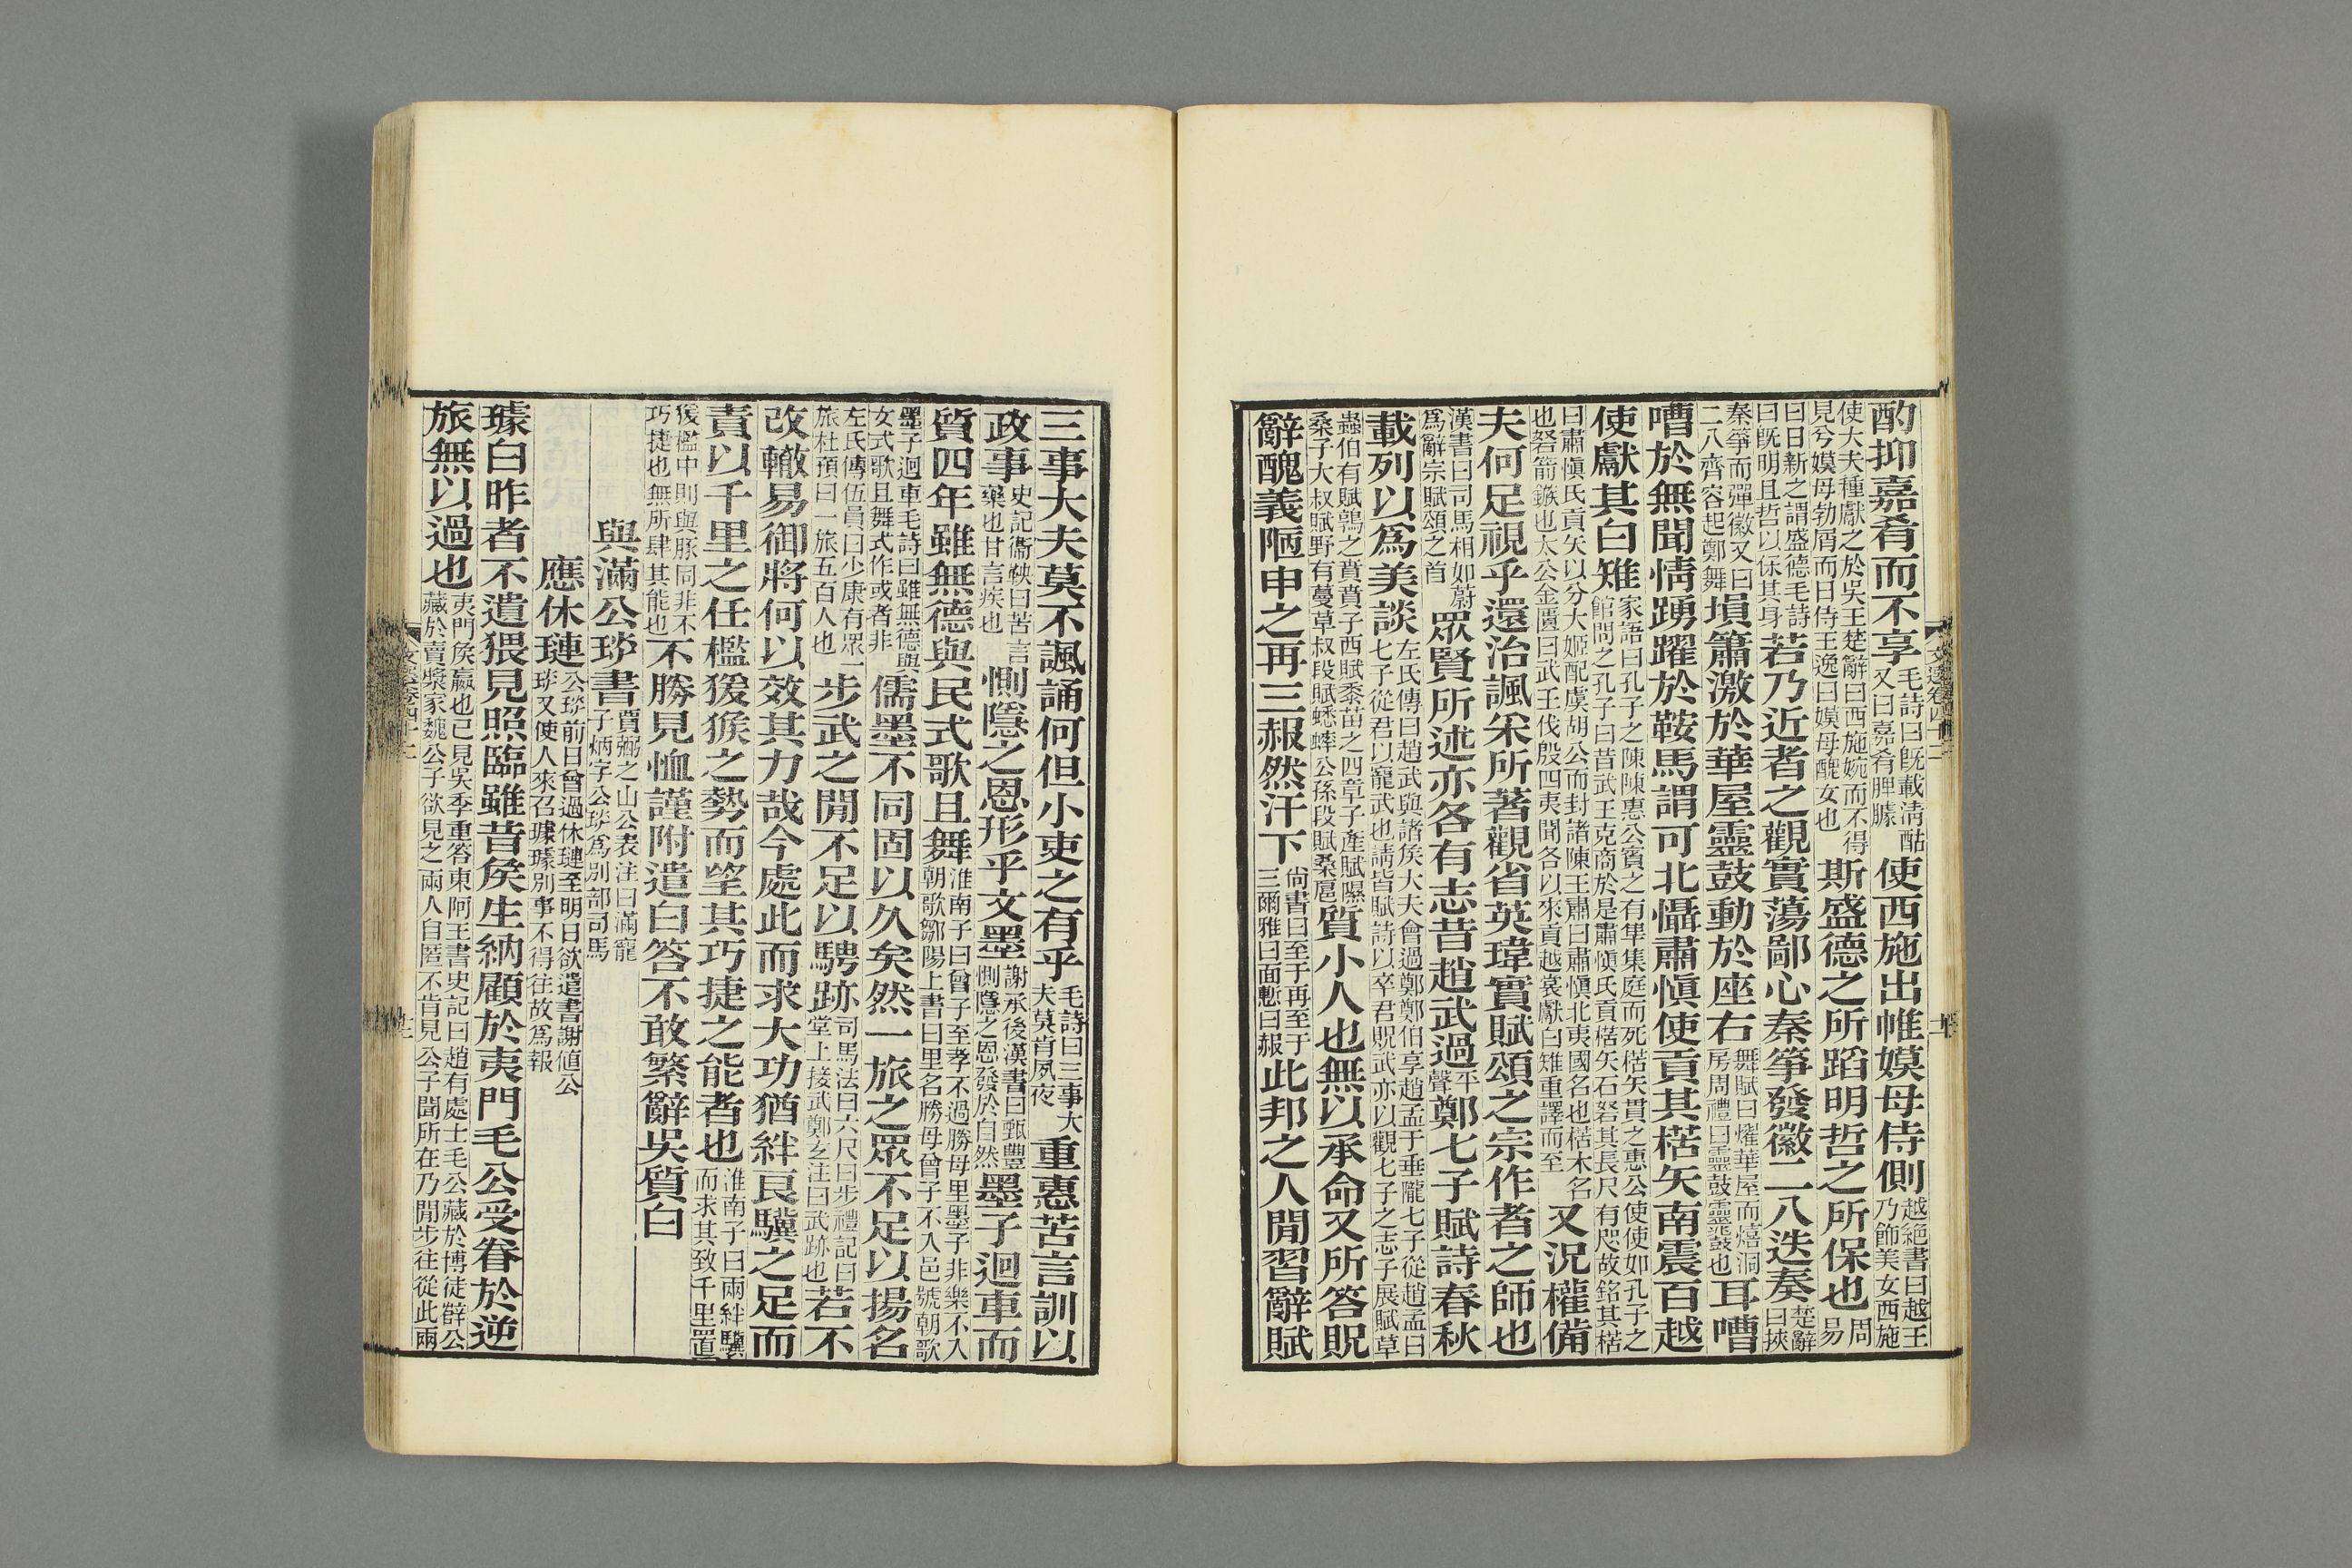 酌抑嘉肴而不享毛詩曰旣載淸酤又曰嘉肴脾臄使西施出帷嫫母侍側越絕書曰越王乃飾美女西施
使大夫種獻之於吳王楚辭曰西施婉而不得見兮嫫母勃屑而日侍王逸曰嫫母醜女也斯盛德之所蹈明哲之所保也周易
曰日新之謂盛德毛詩曰旣明且哲以保其身若乃近者之觀實蕩鄙心秦箏發徽二八迭奏楚辭曰挾
秦箏而彈徽又曰二八齊容起鄭舞塤簫激於華屋靈鼓動於座右舞賦曰燿華屋而熺洞房周禮曰靈鼓靈鼗也耳嘈
嘈於無聞情踴躍於鞍馬謂可北懾肅愼使貢其楛矢南震百越
使獻其白雉家語曰孔子之陳陳惠公賓之有隼集庭而死楛矢貫之惠公使使如孔子之館問之孔子曰昔武王克商於是肅愼氏貢楛矢石砮其長尺有咫故銘其楛
曰肅愼氏貢矢以分大姬配虞胡公而封諸陳王肅曰肅愼北夷國名也楛木名也砮箭鏃也太公金匱曰武王伐殷四夷聞各以來貢越裳獻白雉重譯而至又況權備
夫何足視乎還治諷采所著觀省英瑋實賦頌之宗作者之師也
漢書曰司馬相如蔚爲辭宗賦頌之首眾賢所述亦各有志昔趙武過平聲鄭七子賦詩春秋
載列以爲美談左氏傳曰趙武與諸侯大夫會過鄭鄭伯享趙孟于垂隴七子從趙孟曰七子從君以寵武也請皆賦詩以卒君貺武亦以觀七子之志子展賦草
蟲伯有賦鶉之賁賁子西賦黍苗之四章子產賦隰桑子大叔賦野有蔓草叔段賦蟋蟀公孫段賦桑扈質小人也無以承命又所答貺
辭醜義陋申之再三赧然汗下尙書曰至于再至于三爾雅曰面慙曰赧此邦之人閒習辭賦
三事大夫莫不諷誦何但小吏之有乎毛詩曰三事大夫莫肯夙夜重惠苦言訓以
政事史記衞鞅曰苦言藥也甘言疾也惻隱之恩形乎文墨謝承後漢書曰甄豐惻隱之恩發於自然墨子迴車而
質四年雖無德與民式歌且舞淮南子曰曾子至孝不過勝母里墨子非樂不入朝歌鄒陽上書曰里名勝母曾子不入邑號朝歌
墨子迴車毛詩曰雖無德與女式歌且舞式作或者非儒墨不同固以久矣然一旅之眾不足以揚名
左氏傳伍員曰少康有眾一旅杜預曰一旅五百人也步武之閒不足以騁跡司馬法曰六尺曰步禮記曰堂上接武鄭玄注曰武跡也若不
改轍易御將何以效其力哉今處此而求大功猶絆良驥之足而
責以千里之任檻猨猴之勢而望其巧捷之能者也淮南子曰兩絆驥而求其致千里置
猨檻中則與豚同非不巧捷也無所肆其能也不勝見恤謹附遣白答不敢繁辭吳質白
與滿公琰書賈弼之山公表注曰滿寵子炳字公琰爲別部司馬
應休璉公琰前日曾過休璉至明日欲遣書謝値公琰又使人來召璩璩別事不得往故爲報
璩白昨者不遺猥見照臨雖昔侯生納顧於夷門毛公受眷於逆
旅無以過也夷門侯嬴也已見吳季重答東阿王書史記曰趙有處士毛公藏於博徒薛公藏於賣漿家魏公子欲見之兩人自匿不肯見公子聞所在乃閒步往從此兩
文選卷四十二